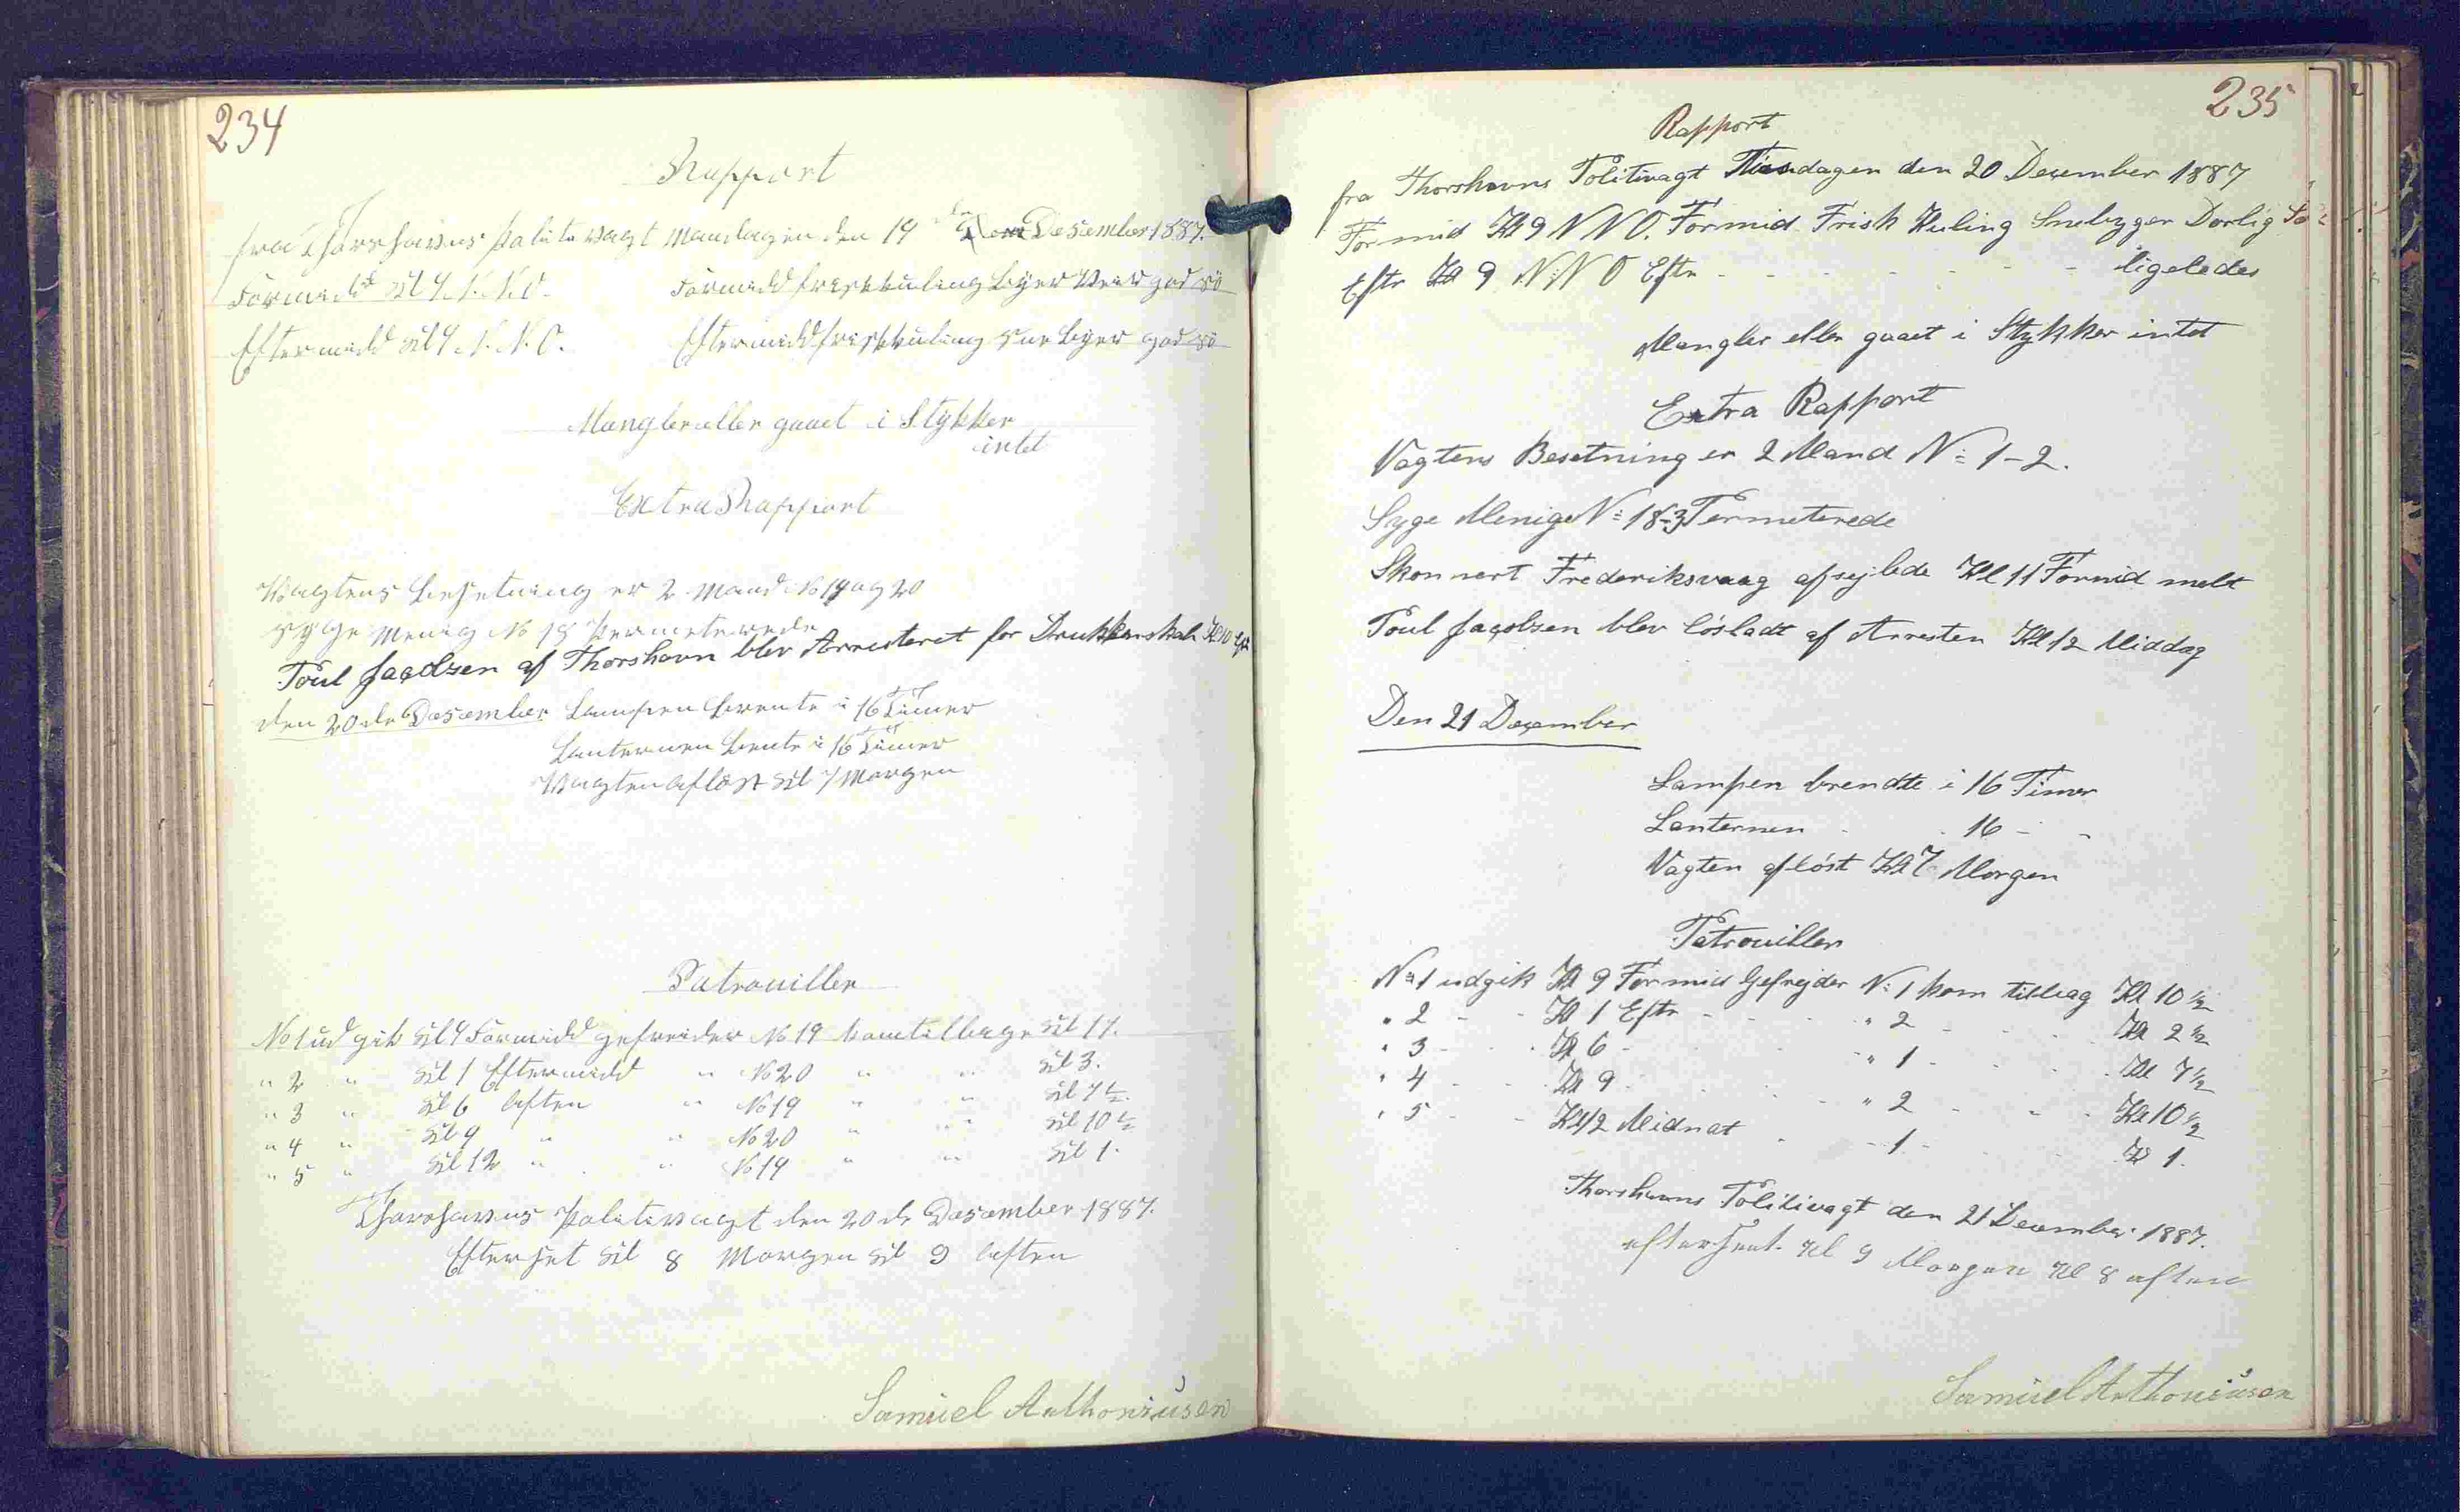 234
Rapport
fra Thorshavns Politivagt Mandagen den 19 de Desember 1887.
Formidd Kl 9 N.N.O. Formidd frisk kuling byer Veir god sö
Eftermidd Kl 9 N.N.O. Eftermidd frisk kuling Sne byer god sö
Mangler eller gaaet i Stykker
intet
Extra Rapport
Vagtens besetning er 2 Mand No 19 og 20
Syge Menig No 18 Permeterede
Poul Jacobsen af Thorshavn blev Arresteret for Drukkenskab Kl 10 Eft
den 20 de Desember Lampen brente i 16 Timer
Lanternen brente i 16 Timer
Vagten aflöst Kl 7 Morgen
Patrouiller
No 1 ud gik Kl 9 Formidd gefreider No 19 kom tilbage Kl 11.
" 2 " Kl 1 Eftermidd " No 20 " " Kl 3.
" 3 " Kl 6 Aften " No 19 " " Kl 7 ½.
" 4 " Kl 9 " " No 20 " " Kl 10 ½
" 5 " Kl 12 " " No 19 " " Kl 1.
Thorshavns Politivagt den 20 de Desember 1887.
Efterset Kl 8 Morgen Kl 9 Aften
Samuel Anthoniusen
235
Rapport
fra Thorshavns Politivagt Tirsdagen den 20 Desember 1887
Formid Kl 9 N N O. Formid Frisk Kuling Snebyger Dorlig Sö
Eftr Kl 9 N N O Eftr - - - - - - ligeledes
Mangler eller gaaet i Stykker intet
Extra Rapport
Vagtens Besetning er 2 Mand N: 1-2.
Syge Menige N: 18-3 Permeterede
Skonnert Frederiksvaag afsejlede Kl 11 Formid melt
Poul Jacobsen blev lösladt af Arresten Kl 12 Middag
Den 21 Desember
Lampen brendte i 16 Timer
Lanternen - - 16 - -
Vagten aflöst Kl 7 Morgen
Patrouiller
N: 1 udgik Kl 9 Formid Gefrejder N: 1 kom tilbag Kl 10 ½
" 2 - - Kl 1 Eftr - - - " 2 - - Kl 2 ½
" 3 - - Kl 6 - - - " 1 - - Kl 7 ½
" 4 - - Kl 9 - - - " 2 - - Kl 10 ½
" 5 - - Kl 12 Midnat - - 1 - - Kl 1.
Thorshavns Politivagt den 21 Desember 1887.
efterseet Kl 9 Morgen Kl 8 aften
Samuel Anthoniusen